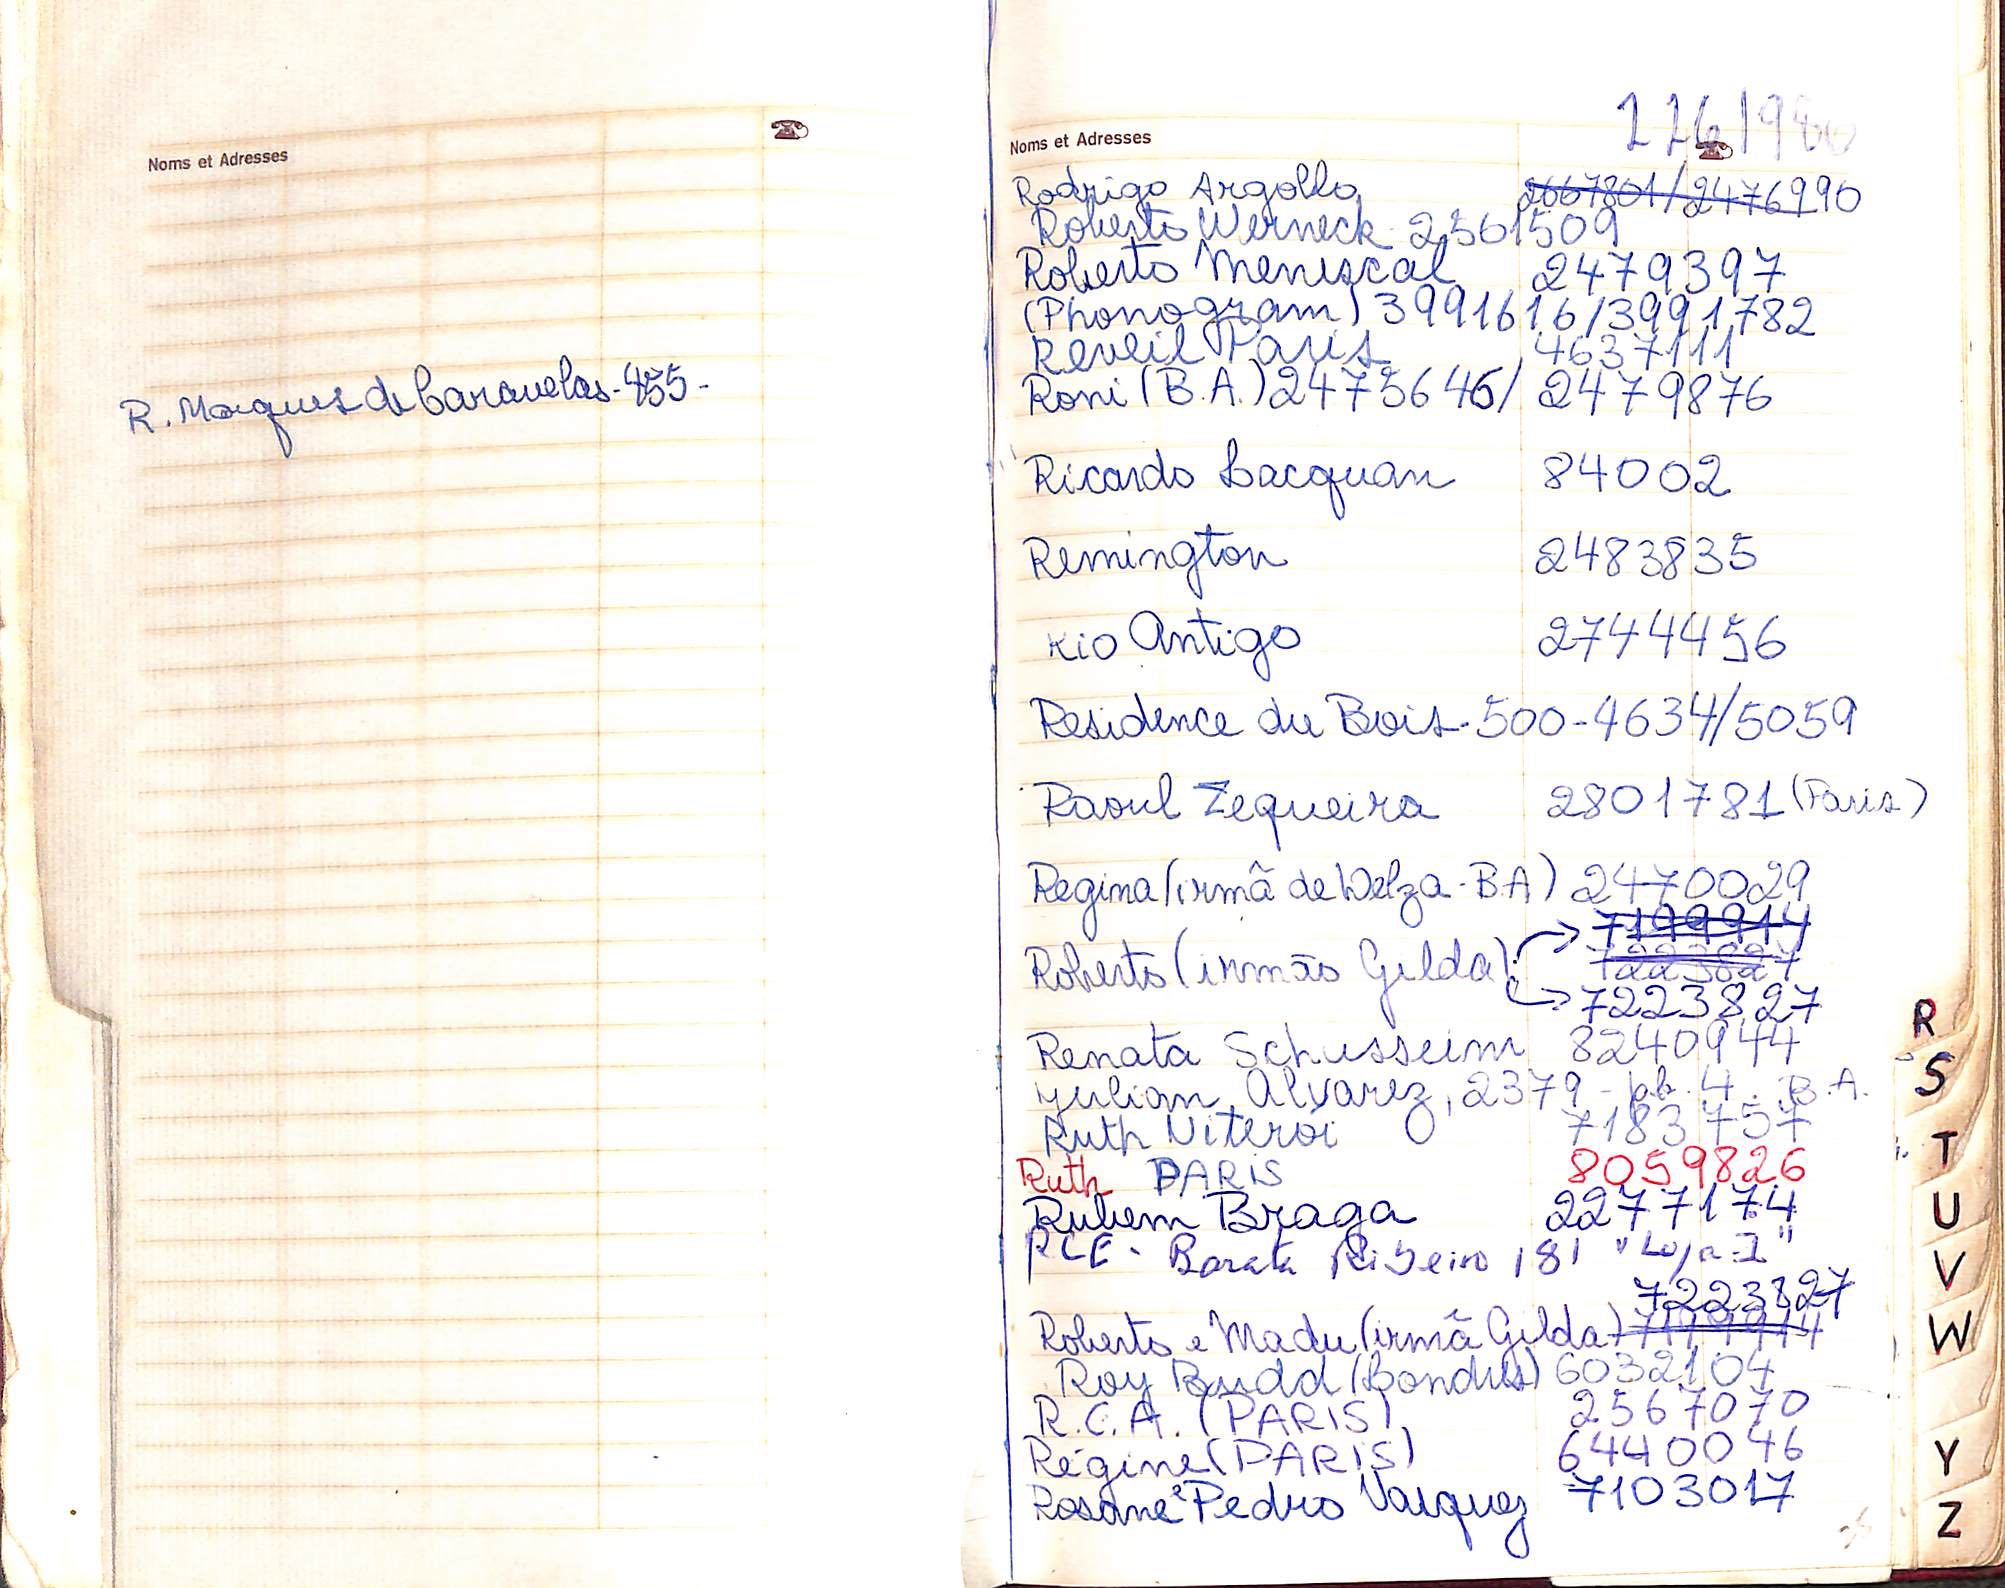 Noms et Adresses
R. Marques de Caravelas - 455 -
2261980
Noms et Adresses
Rodrigo Argollo 2667801/2476990
Roberto Werneck - 2561509
Roberto Meniscal 2479397
(Phonogram) 3991616/3991782
Reveil Paris 4637111
Roni (B.A.) 2475646/ 2479876
Ricardo Lacquan 84002
Remington 2483835
Rio Antigo 2744456
Residence du Bois - 500-4634/5059
Raoul Zequeira 2801781 (Paris)
Regina (irmã de Welza - B.A) 2470029
7199914
7223827
Roberto (irmão Gilda)
7223827
Renata Schusseim 8240944
Yulian Alvarez, 2379 - pb. 4. B.A.
Ruth Niteroi 7183757
Ruth PARIS 8059826
Rubem Braga 2277174
RLE - Barata Ribeiro 181 "Loja I"
7223827
Roberto e Madu (irmã Gilda) 7199914
Roy Budd (Londres) 6032104
R.C.A. (PARIS) 2567070
Régine (PARIS) 6440046
Rosane e Pedro Vasquez 7103017
R
S
T
U
V
W
Y
Z